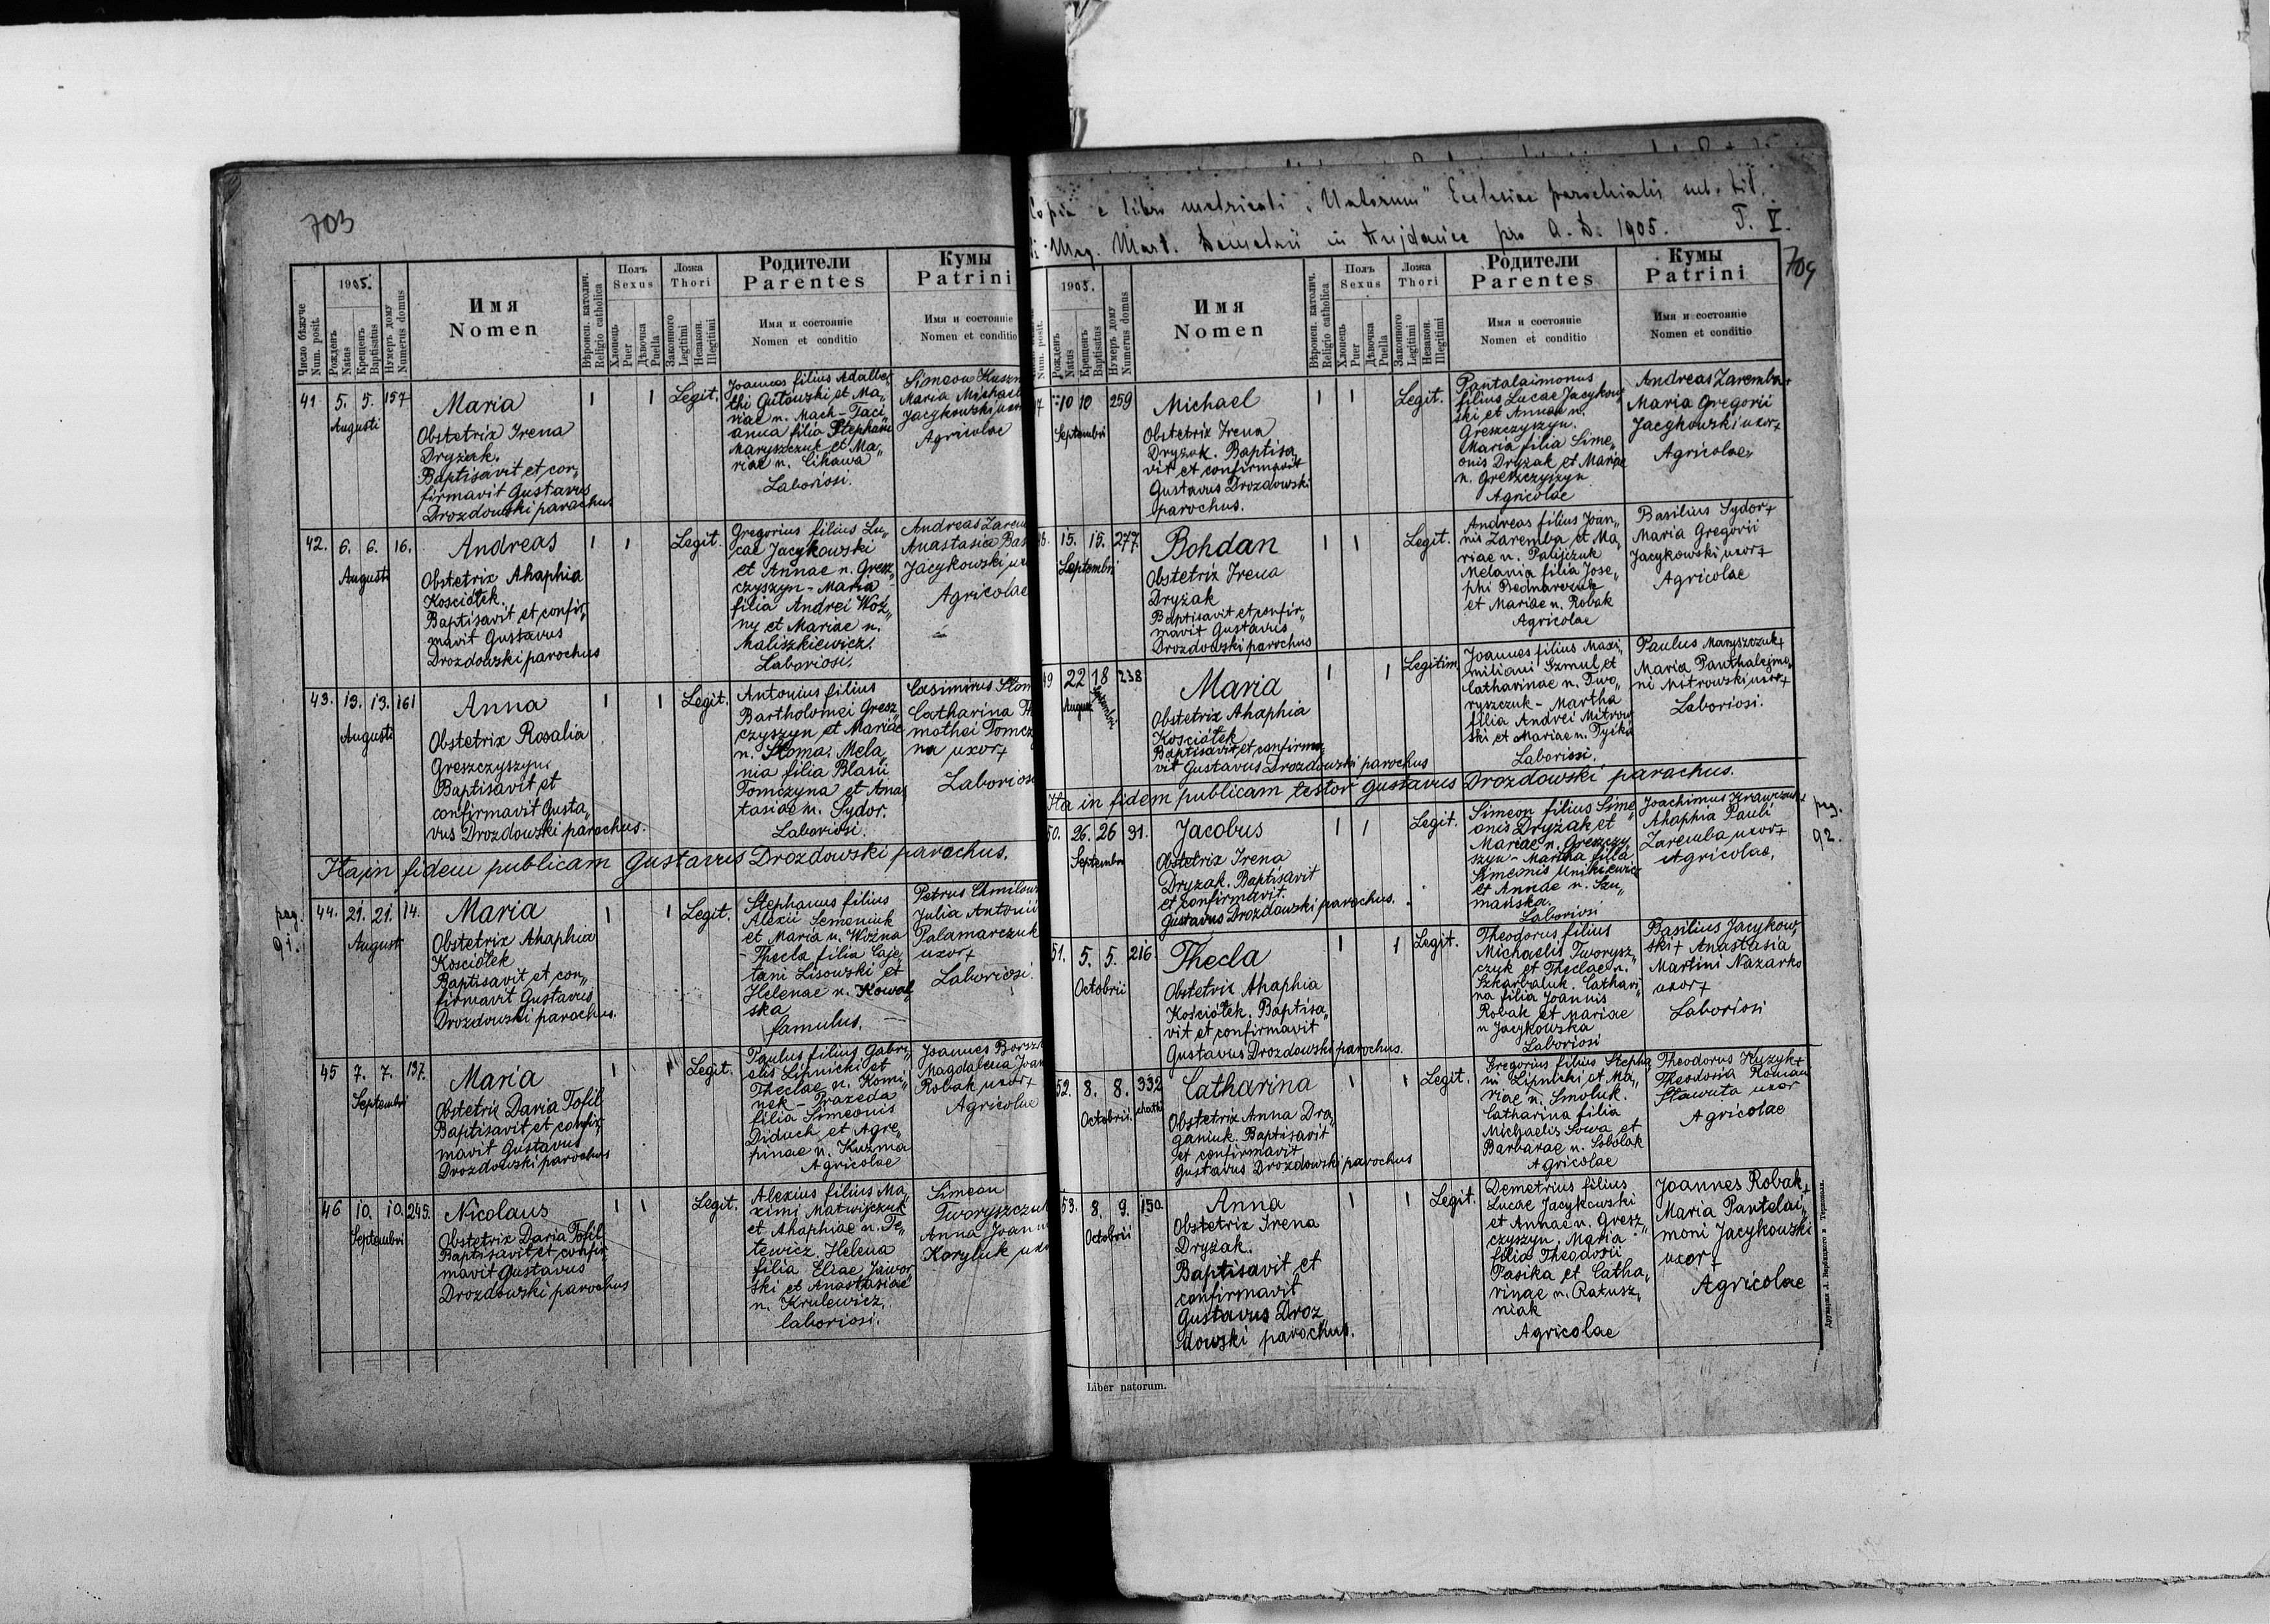 703
Число бѣжуче
Num. posit.
1905.
Рожденъ
Natus
Крещенъ
Baptisatus
Нумеръ дому
Numerus domus
Имя
Nomen
Вѣроисп. католич.
Religio catholica
Полъ
Sexus
Хлопець
Puer
Дѣвочка
Puella
Ложа
Thori
Законного
Legitimi
Незакон.
Illegitimi
Родители
Parentes
Имя и состояніе
Nomen et conditio
Кумы
Patrini
Имя и состояніе
Nomen et conditio
41 5. 5. 157
Augusti
Maria
Obstetrix Irena
Dryżak.
Baptisavit et con„
firmavit Gustavus
Drozdowski parochus.
1 1 Legit.
Joannes filius Adalber„
thi Gutowski et Ma„
riae n. Mach - Taci„
anna filia Stephani
Maryszczuk et Ma„
riae n. Cikawa
Laboriosi.
Simeon
Maria Michaeli
Jacykowski uxor
Agricolae
42. 6. 6. 16.
Augusti
Andreas
Obstetrix Ahaphia
Kosciółek.
Baptisavit et confir„
mavit Gustavus
Drozdowski parochus
1 1 Legit.
Gregorius filius Lu„
cae Jacykowski
et Annae n. Gresz„
czyszyn - Maria
filia Andrei Woź„
ny et Mariae n.
Maliszkiewicz.
Laboriosi.
Andreas Zarem
Anastasia Bas
Jacykowski, ux
Agricolae
43. 13. 13. 161
Augusti
Anna
Obstetrix Rosalia
Greszczyszyn.
Baptisavit et
confirmavit Gusta„
vus Drozdowski parochus.
1 1 Legit.
Antonius filius
Bartholomei Gresz„
czyszyn et Mariae
n. Słoma. Mela„
nia filia Blasii
Tomczyna et Anas„
tasiae n. Sydor.
Laboriosi.
Casimirus Słom
Catharina Th
mothei Tomczy
na uxor+
Laboriosi
Ita in fidem publicam Gustavus Drozdowski parochus.
pag.
91.
44. 21. 21. 14.
August
Maria
Obstetrix Ahaphia
Kosciółek
Baptisavit et con„
firmavit Gustavus
Drozdowski parochus.
1 1 Legit.
Stephanus filius
Alexii Semeniuk
et Maria n. Woźna
- Thecla filia Caje„
tani Lisowski et
Helenae n. Kowal„
ska
famulus.
Petrus Chmilow
Julia Antonii
Palamarczuk
uxor+
Laboriosi.
45 7. 7. 137.
Septembri
Maria
Obstetrix Daria Tofil
Baptisavit et confir„
mavit Gustavus
Drozdowski parochus
1 1 Legit.
Paulus filius Gabri„
elis Lipnicki et
Theclae n. Komi„
nek - Praxeda
filia Simeonis
Diduch et Agre„
pinae n. Kuźma
Agricolae
Joannes Borszcz
Magdalena Joan
Robak uxor+
Agricolae
46 10. 10. 245.
Septembri
Nicolaus
Obstetrix Daria Tofil
Baptisavit et confir„
mavit Gustavus
Drozdowski parochus
1 1 Legit.
Alexius filius Ma„
ximi Matwijczuk
et Ahaphiae n. Te„
tewicz. Helena
filia Eliae Jawor„
ski et Anastasiae
n. Krulewicz.
laboriosi.
Simeon
Tworyszczuk
Anna Joannis
Koryluk uxo
Copia e libro metricali „Natorum" Ecclesiae parochialis sub. tit.
Mag. Mart. Demetrii in Kujdańce pro A. D. 1905. T. V.
704
Num. posit.
1905.
Рожденъ
Natus
Крещенъ
Baptisatus
Нумеръ дому
Numerus domus
Имя
Nomen
Вѣроисп. католич.
Religio catholica
Полъ
Sexus
Хлопець
Puer
Дѣвочка
Puella
Ложа
Thori
Законного
Legitimi
Незакон.
Illegitimi
Родители
Parentes
Имя и состояніе
Nomen et conditio
Кумы
Patrini
Имя и состояніе
Nomen et conditio
7 10 10 259
Septembri
Michael
Obstetrix Irena
Dryżak. Baptisa„
vit et confirmavit
Gustavus Drozdowski
parochus.
1 1 Legit.
Pantalaimonus
filius Lucae Jacykow„
ski et Annae n.
Greszczyszyn.
Maria filia Sime„
onis Dryżak et Mariae
n. Greszczyszyn
Agricolae
Andreas Zaremba+
Maria Gregorii
Jacykowski uxor+
Agricolae
8. 15. 15. 277.
Septembri
Bohdan
Obstetrix Irena
Dryżak
Baptisavit et confir„
mavit Gustavus
Drozdowski parochus
1 1 Legit.
Andreas filius Joan„
nis Zaremba et Ma„
riae n. Palijczuk
Melania filia Jose„
phi Bednarczuk
et Mariae n. Robak
Agricolae
Basilius Sydor+
Maria Gregorii
Jacykowski, uxor+
Agricolae
49 22 18 238
August Septembri
Maria
Obstetrix Ahaphia
Kosciółek
Baptisavit et confirma„
vit Gustavus Drozdowski parochus
1 1 Legitim.
Joannes filius Maxi„
miliani Szmul et
Catharinae n. Two„
ryszczuk - Martha
filia Andrei Mitrow„
ski et Mariae n. Tyćka
Laboriosi.
Paulus Maryszczuk+
Maria Panthaleimo„
ni Mitrowski, uxor+
Laboriosi.
Ita in fidem publicam testor Gustavus Drozdowski parochus.
pag.
92.
50. 26. 26 91.
Septembri
Jacobus
Obstetrix Irena
Dryżak. Baptisavit
et confirmavit
Gustavus Drozdowski parochus.
1 1 Legit.
Simeon filius Sime„
onis Dryżak et
Mariae n. Greszczy„
szyn - Martha filia
Simeonis Unikiewicz
et Annae n. Szu„
mańska.
Laboriosi
Joachimus Krawczuk+
Ahaphia Pauli
Zaremba uxor+
Agricolae.
51. 5. 5. 216
Octobrii
Thecla
Obstetrix Ahaphia
Kościółek. Baptisa„
vit et confirmavit
Gustavus Drozdowski parochus.
1 1 Legit.
Theodorus filius
Michaelis Tworysz„
czuk et Theclae n.
Szkarbaluk. Cathari„
na filia Joannis
Robak et Mariae
n Jacykowska
Laboriosi
Basilius Jacykow„
ski+ Anastasia
Martini Nazarko
uxor+
Laboriosi
52. 8. 8. 332
Octobrii.
Catharina
Obstetrix Anna Dra„
ganiuk. Baptisavit
et confirmavit
Gustavus Drozdowski parochus
1 1 Legit.
Gregorius filius Stepha„
ni Lipnicki et Ma„
riae n. Smoluk.
Catharina filia
Michaelis Sowa et
Barbarae n. Sobolak
Agricolae
Theodorus Kuzyk+
Theodosia Romani
Sławuta uxor
Agricolae
53. 8. 9. 150.
Octobrii
Anna
Obstetrix Irena
Dryżak.
Baptisavit et
confirmavit
Gustavus Droz„
dowski parochus.
1 1 Legit.
Demetrius filius
Lucae Jacykowski
et Annae n. Gresz„
czyszyn. Maria
filia Theodorii
Pasika et Catha„
rinae n. Ratusz„
niak
Agricolae
Joannes Robak+
Maria Pantelai„
moni Jacykowski
uxor+
Agricolae
Liber natorum.